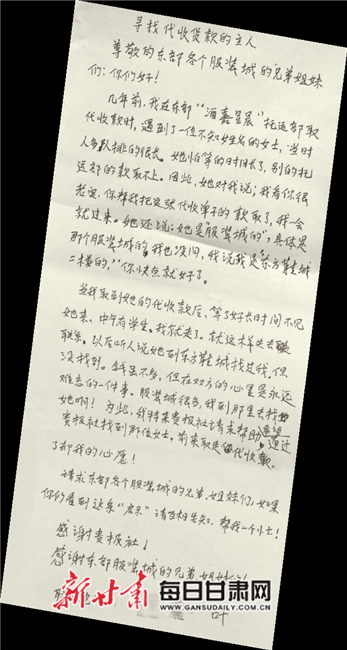 寻找代收货款的主人
尊敬的东部各个服装城的兄弟姐妹
们：你们好！
几年前，我在东部“酒嘉星晨”托运部取
代收款时，遇到了一位不知姓名的女士，当时
人多队排的很长。她怕等的时间长了，别的托
运部的款取不上。因此，她对我说：我看你很
老实，你帮我把这张代收单子的款取了，我一会
就过来。她还说：她是“服装城的”，具体是
那个服装城的，我也没问，我说我是“东方鞋城
二楼的，”你快点就好了。
当我取到她的代收款后，等了好长时间不见
她来，中午有学生，我就走了。就这样失去
联系。以后听人说她到东方鞋城找过我，但
没找到。钱虽不多，但在双方的心里是永远
难忘的一件事。服装城很多，我到那里去找
她啊！为此，我特来贵报社请求帮助，通过
贵报社找到那位女士，前来取走代收款。
了却我的心愿！
请求东部各个服装城的兄弟、姐妹们，如果
你们看到这条“启示”请互相告知，帮我一个忙！
感谢贵报社！
感谢东部服装城的兄弟、姐妹们！
新甘肃 每日甘肃网
WWW.GANSUDAILY.COM.CN